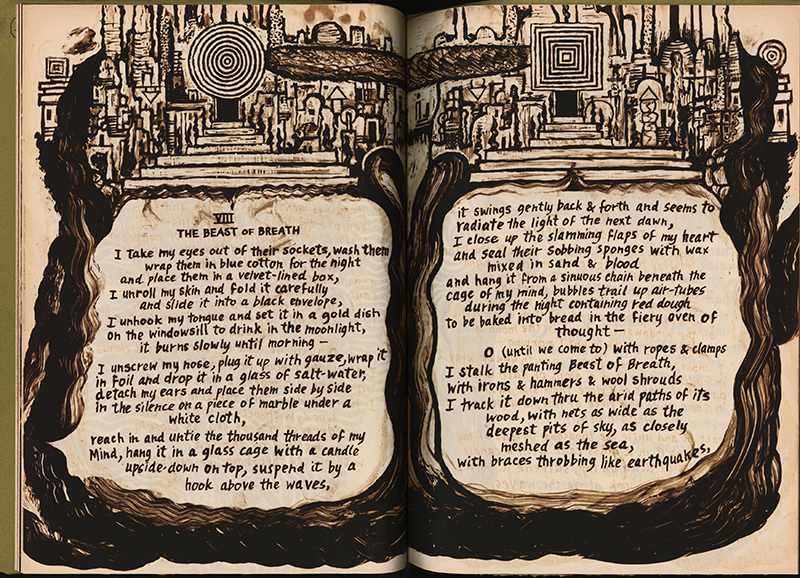 VIII
THE BEAST OF BREATH
I take my eyes out of their sockets, wash them
wrap them in blue cotton for the night
and place them in a velvet-lined box,
I unroll my skin and fold it carefully
and slide it into a black envelope,
I unhook my tongue and set it in a gold dish
on the windowsill to drink in the moonlight,
it burns slowly until morning —
I unscrew my nose, plug it up with gauze, wrap it
in foil and drop it in a glass of salt-water,
detach my ears and place them side by side
in the silence on a piece of marble under a
white cloth,
reach in and untie the thousand threads of my
Mind, hang it in a glass cage with a candle
upside-down on top, suspend it by a
hook above the waves,
it swings gently back & forth and seems to
radiate the light of the next dawn,
I close up the slamming flaps of my heart
and seal their sobbing sponges with wax
mixed in sand & blood
and hang it from a sinuous chain beneath the
cage of my mind, bubbles trail up air-tubes
during the night containing red dough
to be baked into bread in the fiery oven of
thought —
O (until we come to) with ropes & clamps
I stalk the panting Beast of Breath,
with irons & hammers & wool shrouds
I track it down thru the arid paths of its
wood, with nets as wide as the
deepest pits of sky, as closely
meshed as the sea,
with braces throbbing like earthquakes,